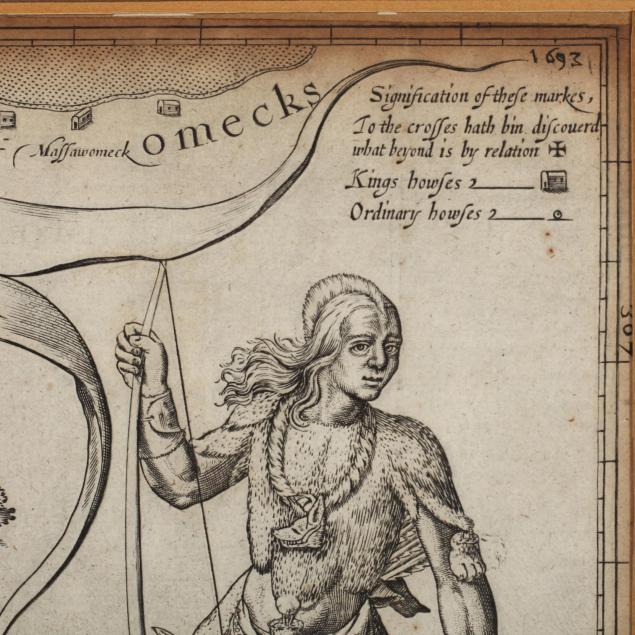 1693
Signification of these markes,
To the crosses hath bin discouerd
what beyond is by relation ✠
Kings howses
Ordinary howses
omecks
Massawomeck
307